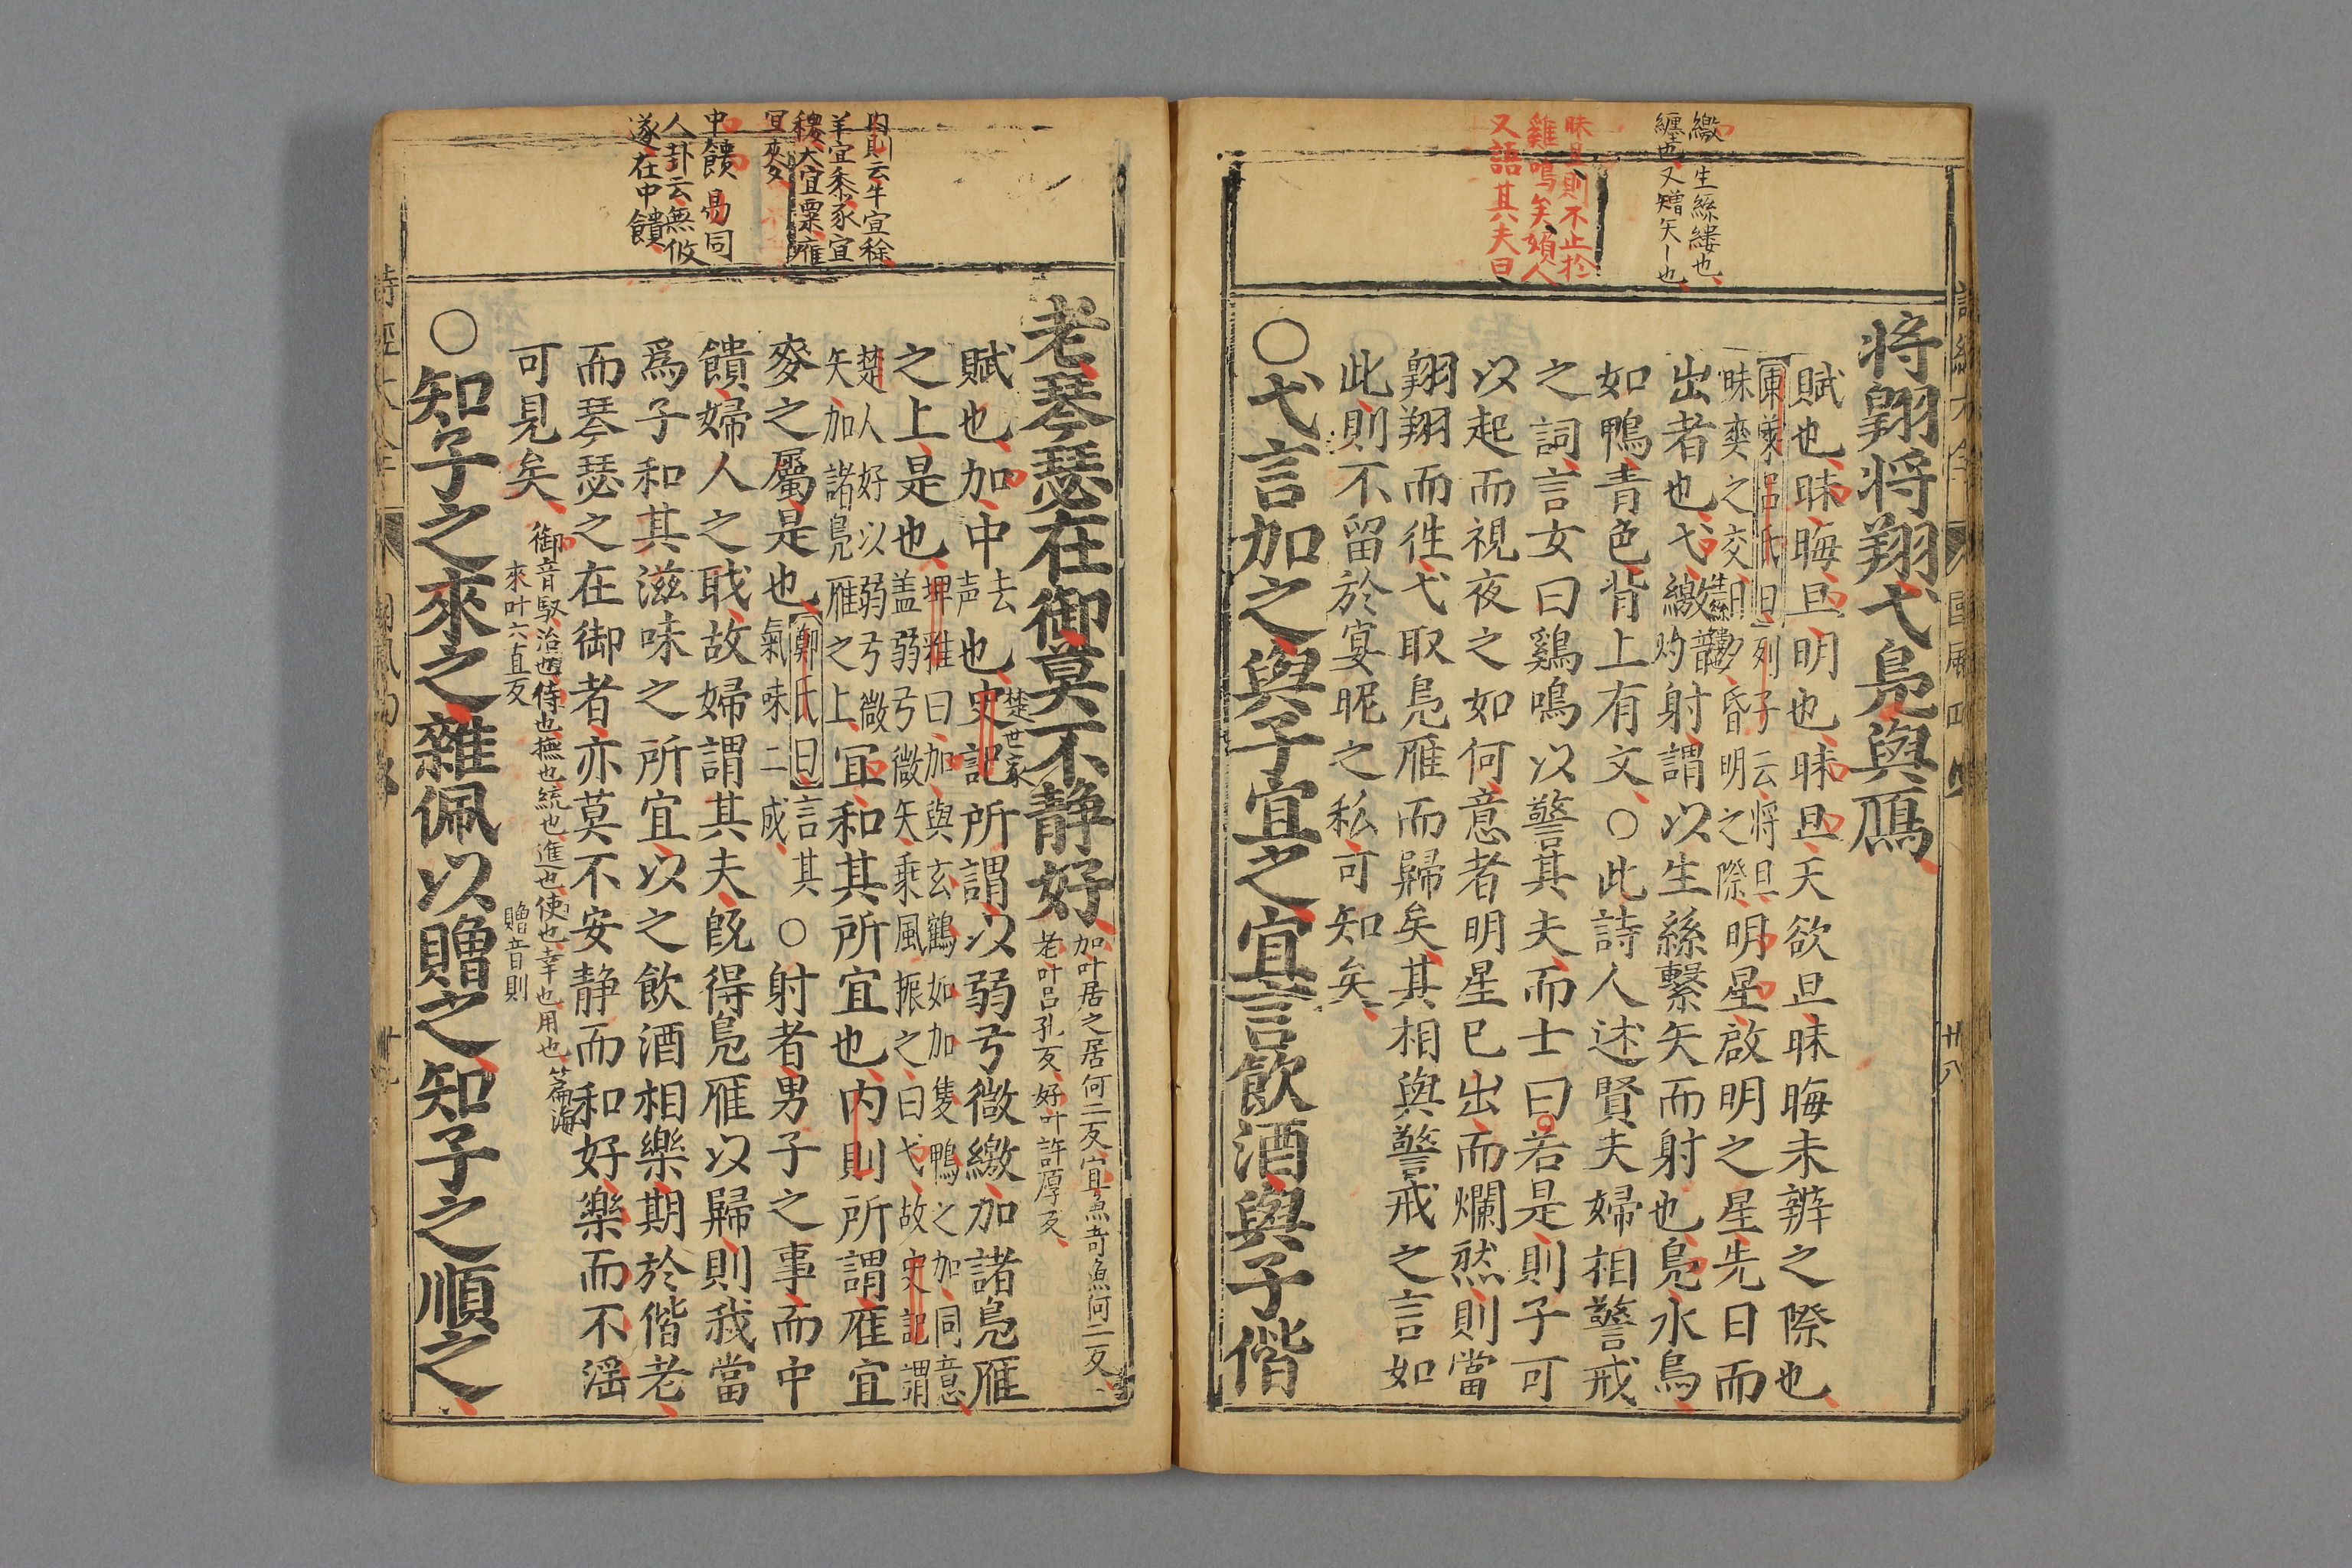 繳　生絲縷也
纏也又矰矢—也
昧旦則不止於
雞鳴矣婦人
又語其夫曰
將翺將翔弋鳬與鴈
賦也昧晦旦明也昧旦天欲旦昧晦未辨之際也
東萊呂氏曰列子云將旦
昧爽之交日夕昏明之際明星啟明之星先日而
出者也弋繳灼射謂以生絲繫矢而射也鳬水鳥
如鴨青色背上有文○此詩人述賢夫婦相警戒
之詞言女曰鷄鳴以警其夫而士曰若是則子可
以起而視夜之如何意者明星已出而爛然則當
翺翔而徃弋取鳬雁而歸矣其相與警戒之言如
此則不留於宴昵之私可知矣
○弋言加之與子宜之宜言飲酒與子偕
詩經大全　國風四　廿八
內則云牛宜稌
羊宜黍豕宜
稷犬宜粟雁
宜麥
中饋　易同
人卦云無攸
遂在中饋
老琴瑟在御莫不靜好
加叶居之居何二反宜魚奇魚何二反
老叶呂孔反好叶許厚反
賦也加中去声也史記楚世家所謂以弱弓微繳加諸鳬雁
之上是也埤雅曰加與玄鶴如加隻鴨之加同意
盖弱弓微矢乘風振之曰弋故史記謂
楚人好以弱弓微
矢加諸鳬雁之上宜和其所宜也內則所謂雁宜
麥之屬是也鄭氏曰言其
氣味二成○射者男子之事而中
饋婦人之職故婦謂其夫旣得鳬雁以歸則我當
爲子和其滋味之所宜以之飲酒相樂期於偕老
而琴瑟之在御者亦莫不安靜而和好樂而不淫
可見矣
御音馭治也侍也撫也統也進也使也幸也用也篇海
來叶六直反　贈音則
○知子之來之雜佩以贈之知子之順之